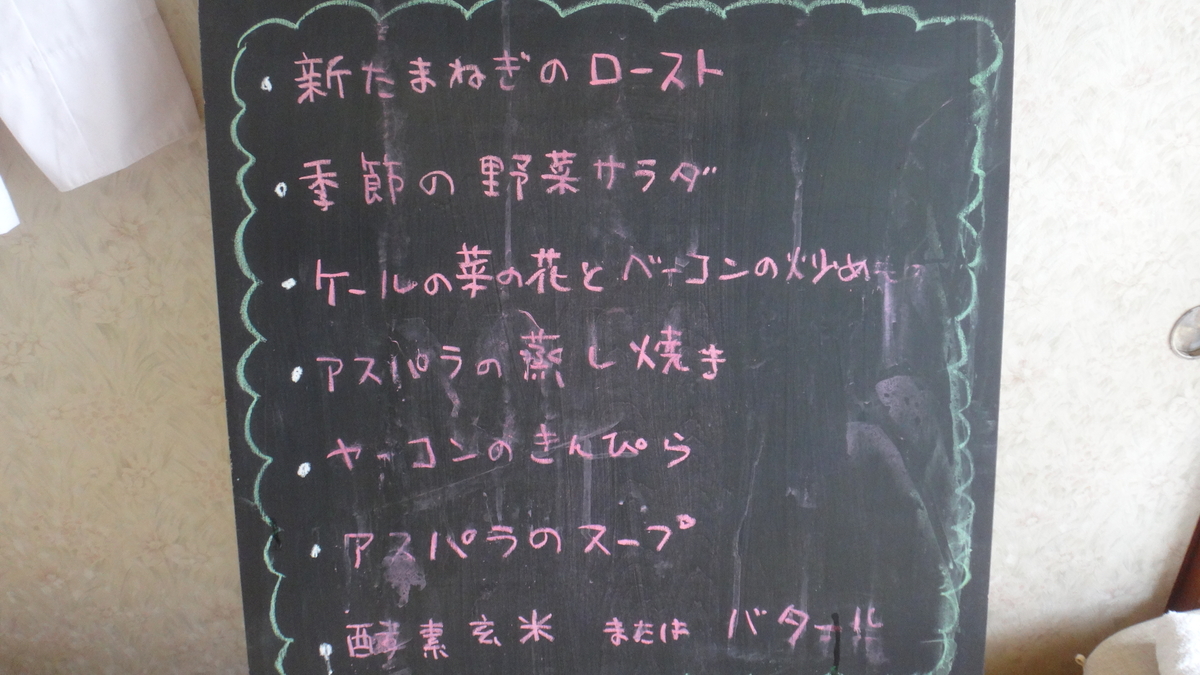 ・新たまねぎのロースト
・季節の野菜サラダ
・ケールの菜の花とベーコンの炒めもの
・アスパラの蒸し焼き
・ヤーコンのきんぴら
・アスパラのスープ
・酵素玄米 または バタール